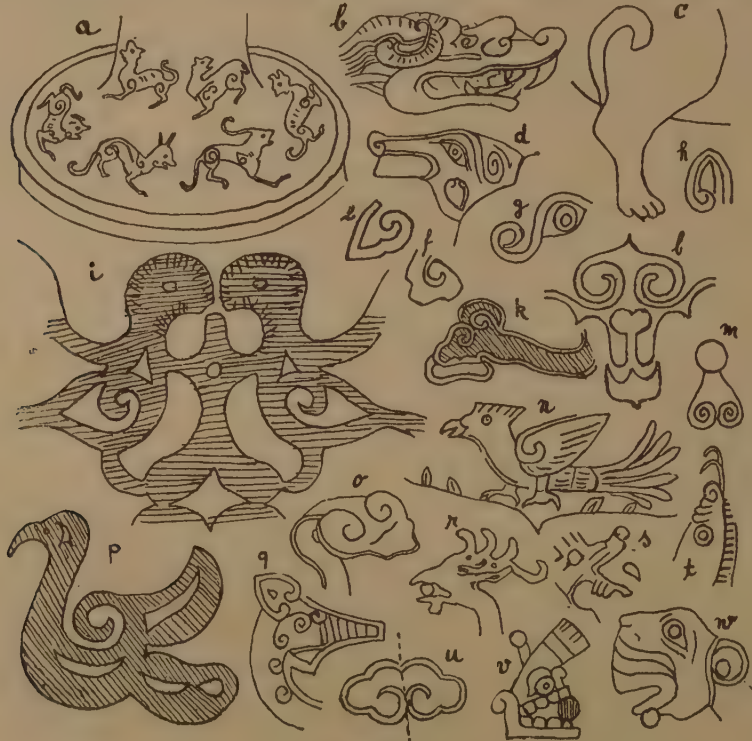 a
b
c
d
h
e
f
g
i
l
k
m
n
o
p
q
r
s
t
u
v
w